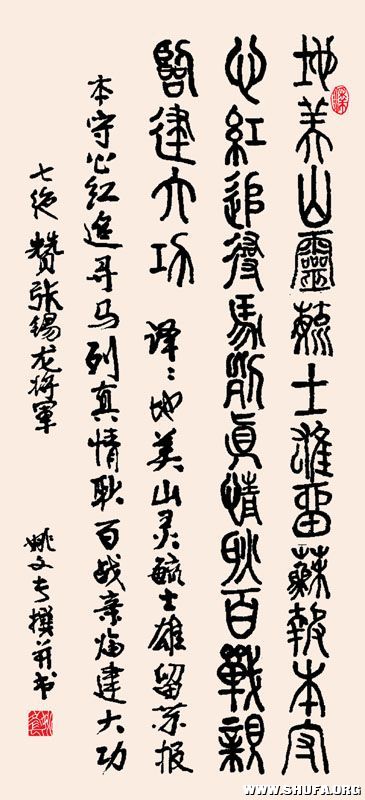 地美山靈毓士雄留蘇報本守
心紅追尋馬列真情耿百戰親
臨建大功 译:地美山灵毓士雄留苏报
本守心红追寻马列真情耿百战亲临建大功
七绝 赞张锡龙将軍 姚文撰并书
WWW.SHUFA.ORG